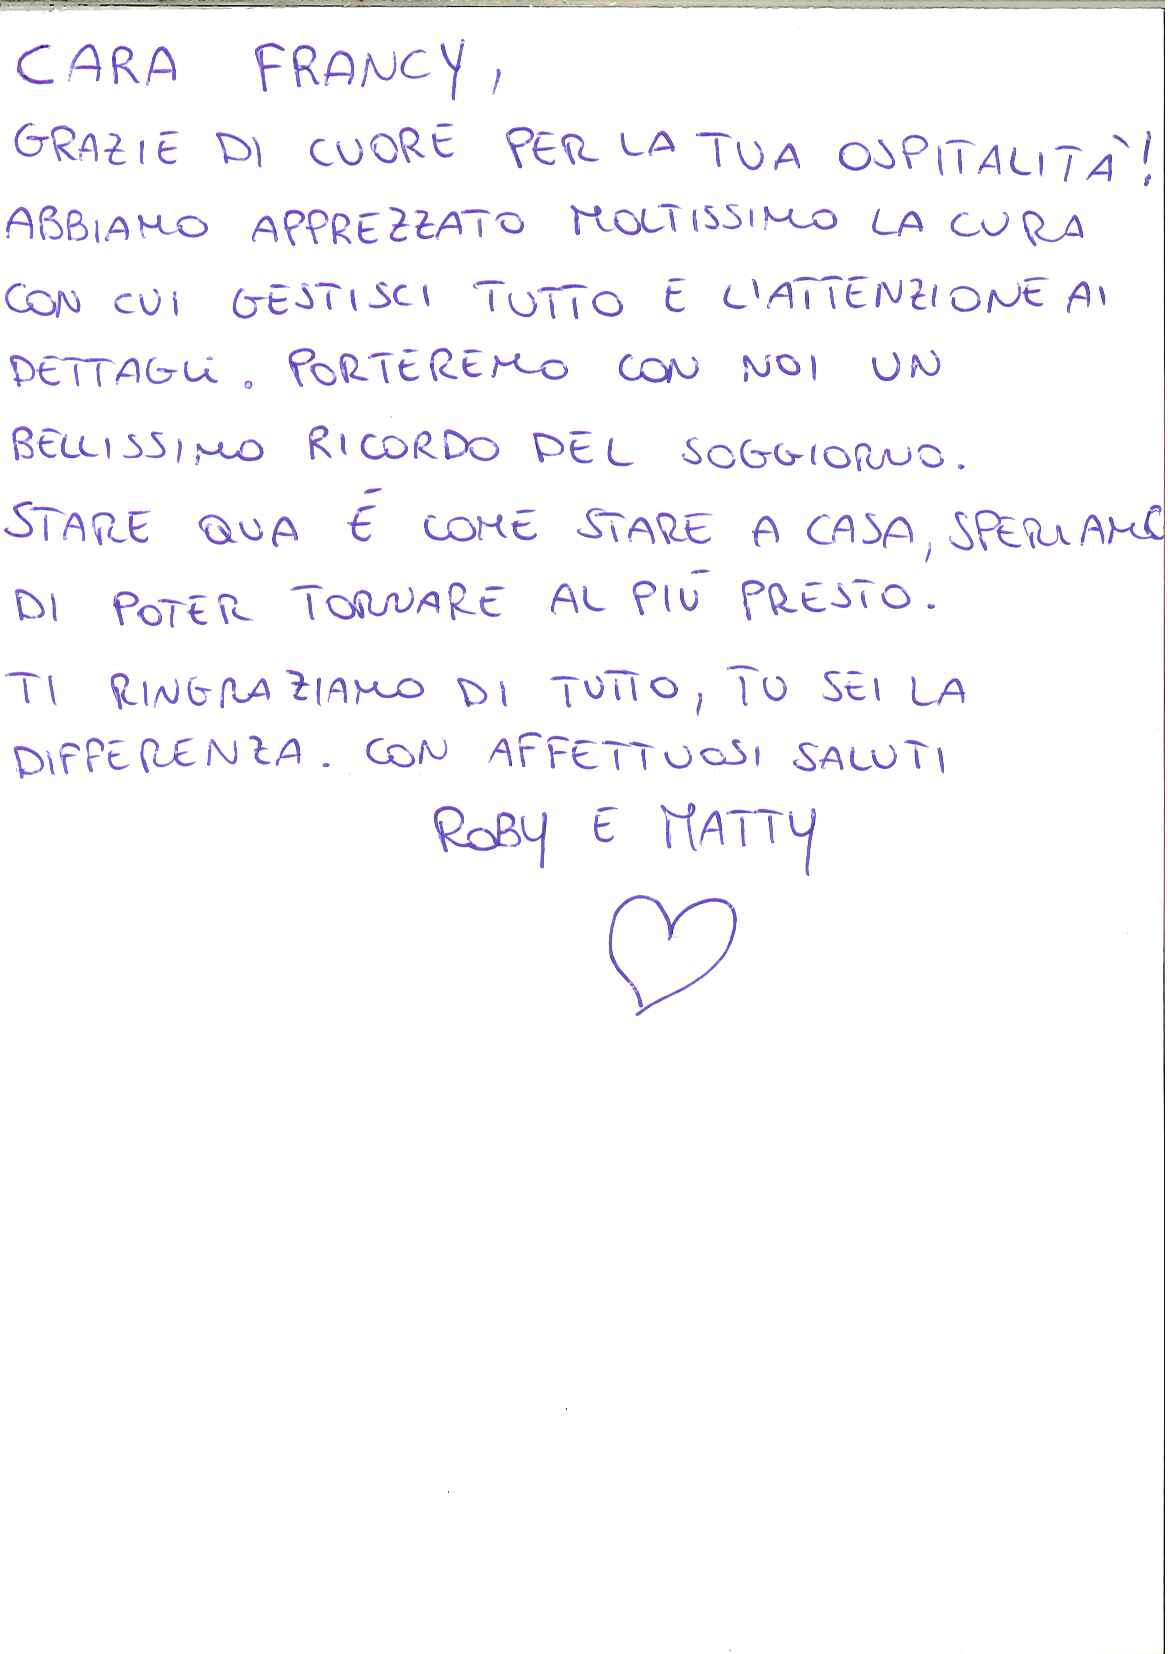 CARA FRANCY,
GRAZIE DI CUORE PER LA TUA OSPITALITÀ!
ABBIAMO APPREZZATO MOLTISSIMO LA CURA
CON CUI GESTISCI TUTTO E L'ATTENZIONE AI
DETTAGLI. PORTEREMO CON NOI UN
BELLISSIMO RICORDO DEL SOGGIORNO.
STARE QUA È COME STARE A CASA, SPERIAMO
DI POTER TORNARE AL PIÙ PRESTO.
TI RINGRAZIAMO DI TUTTO, TU SEI LA
DIFFERENZA. CON AFFETTUOSI SALUTI
ROBY E MATTY